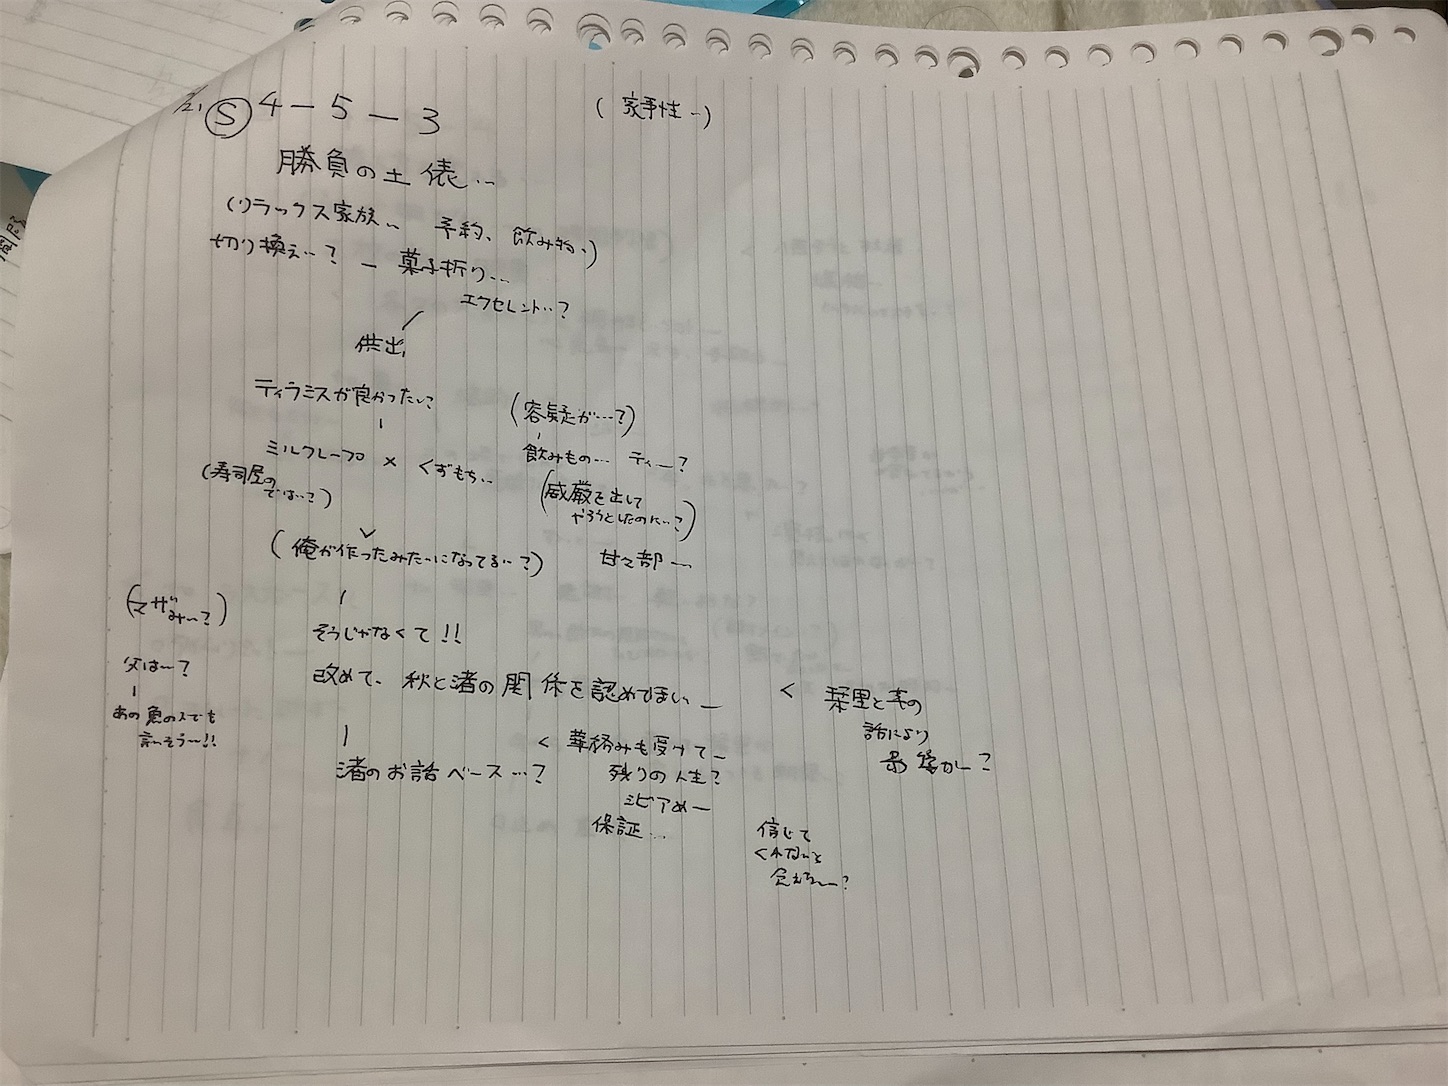 Ⓢ 4-5-3
勝負の土俵…
(リラックス家族… 予約、飲み物…)
切り換え…? ー 菓子折り…
エクセレント…?
供出
ティラミスが良かったい?
(容疑が…?)
ミルクレープ × くずもち…
飲みもの… ティー?
(寿司屋の
では…?)
(威厳を出して
やろうとしたのに…?)
(俺が作ったみたいになってる…?)
甘々部ー
そうじゃなくて!!
父は…?
改めて、秋と渚の関係を認めてほしい
< 栞里と
話により
あの魚の人でも
言いそう…!!
渚のお話ベース…?
< 華
みも受けて
残りの人生?
シビアめー
保証…
信じて
くれないと